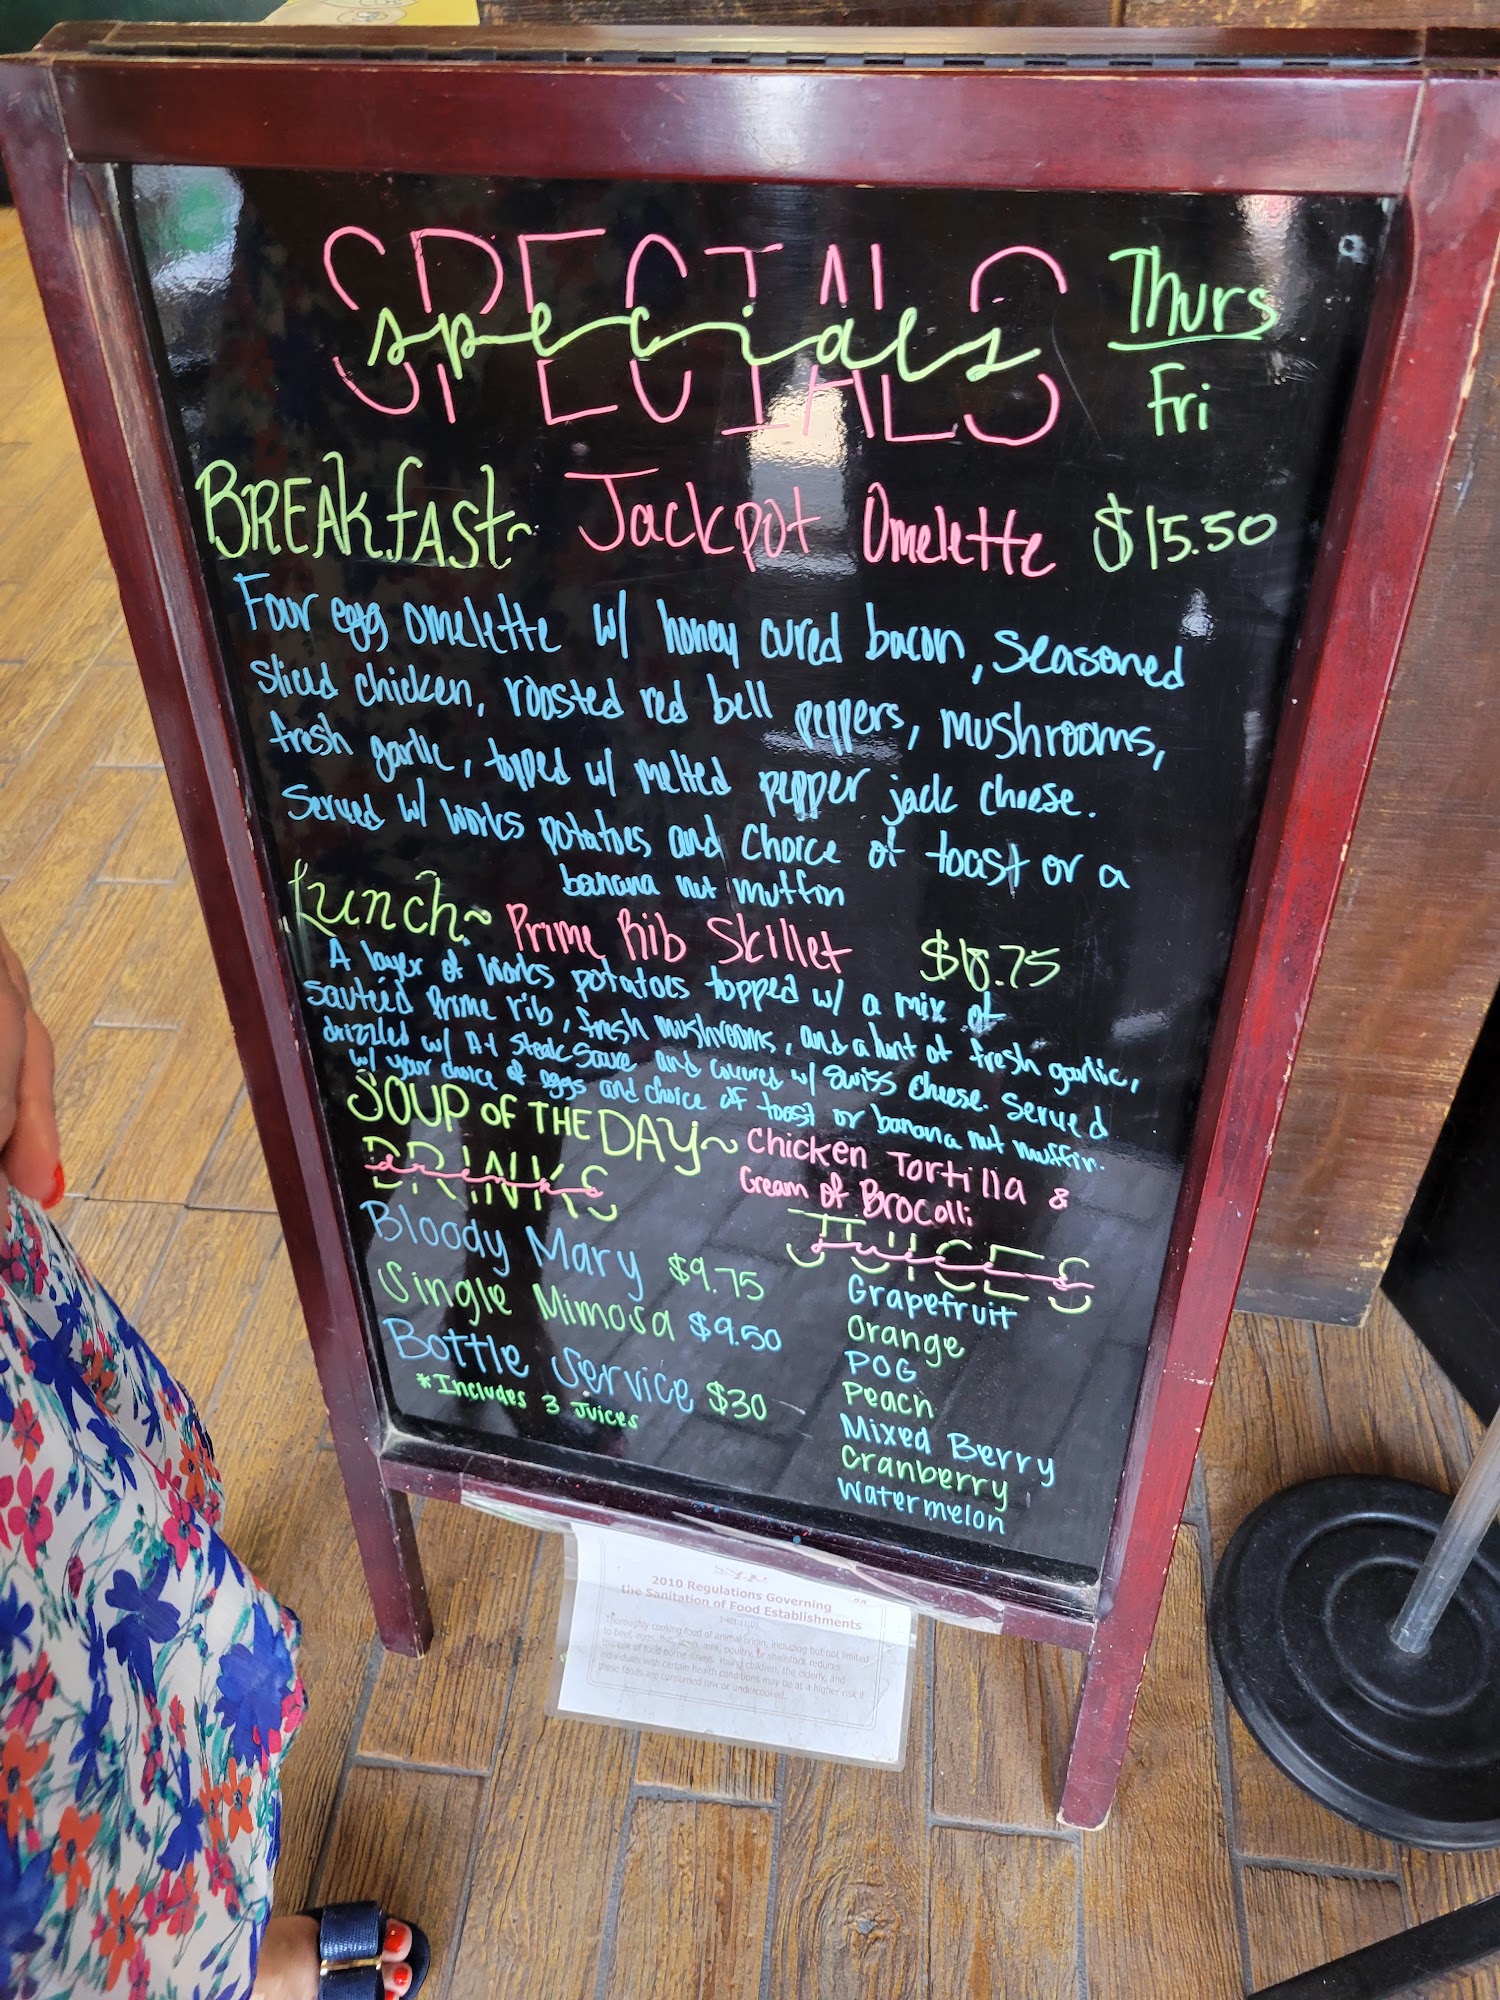 SPECIALS
specials
Thurs
Fri
BREAKfASt~ Jackpot Omelette $15.50
Four egg omelette w/ honey cured bacon, seasoned
sliced chicken, roasted red bell peppers, mushrooms,
fresh garlic, topped w/ melted pepper jack cheese.
Served w/ works potatoes and choice of toast or a
banana nut muffin
Lunch~ Prime Rib Skillet $18.75
A layer of works potatoes topped w/ a mix of
sautéed prime rib, fresh mushrooms, and a hint of fresh garlic,
drizzled w/ A-1 steak sauce and covered w/ swiss cheese. Served
w/ your choice of eggs and choice of toast or banana nut muffin.
SOUP of THE DAY~ Chicken Tortilla &
Cream of Brocolli
DRINKS
drinks
Bloody Mary $9.75
Single Mimosa $9.50
Bottle Service $30
*Includes 3 Juices
JUICES
juices
Grapefruit
Orange
POG
Peach
Mixed Berry
Cranberry
Watermelon
2010 Regulations Governing
the Sanitation of Food Establishments
3-401.11(D)
Thoroughly cooking food of animal origin, including but not limited
to beef, eggs, fish, lamb, milk, poultry, or shellstock reduces
the risk of food borne illness. Young children, the elderly, and
individuals with certain health conditions may be at a higher risk if
these foods are consumed raw or undercooked.